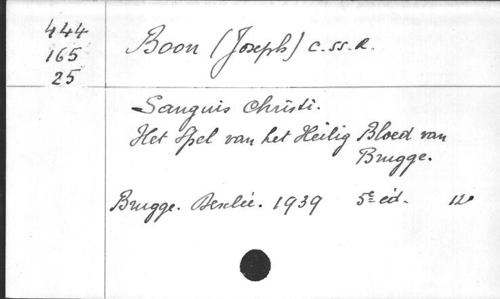 444
165
25
Boon (Joseph) c.ss.R.
Sanguis Christi.
Het Spel van het Heilig Bloed van
Brugge.
Brugge. Beselie. 1939 5e éd. 12°